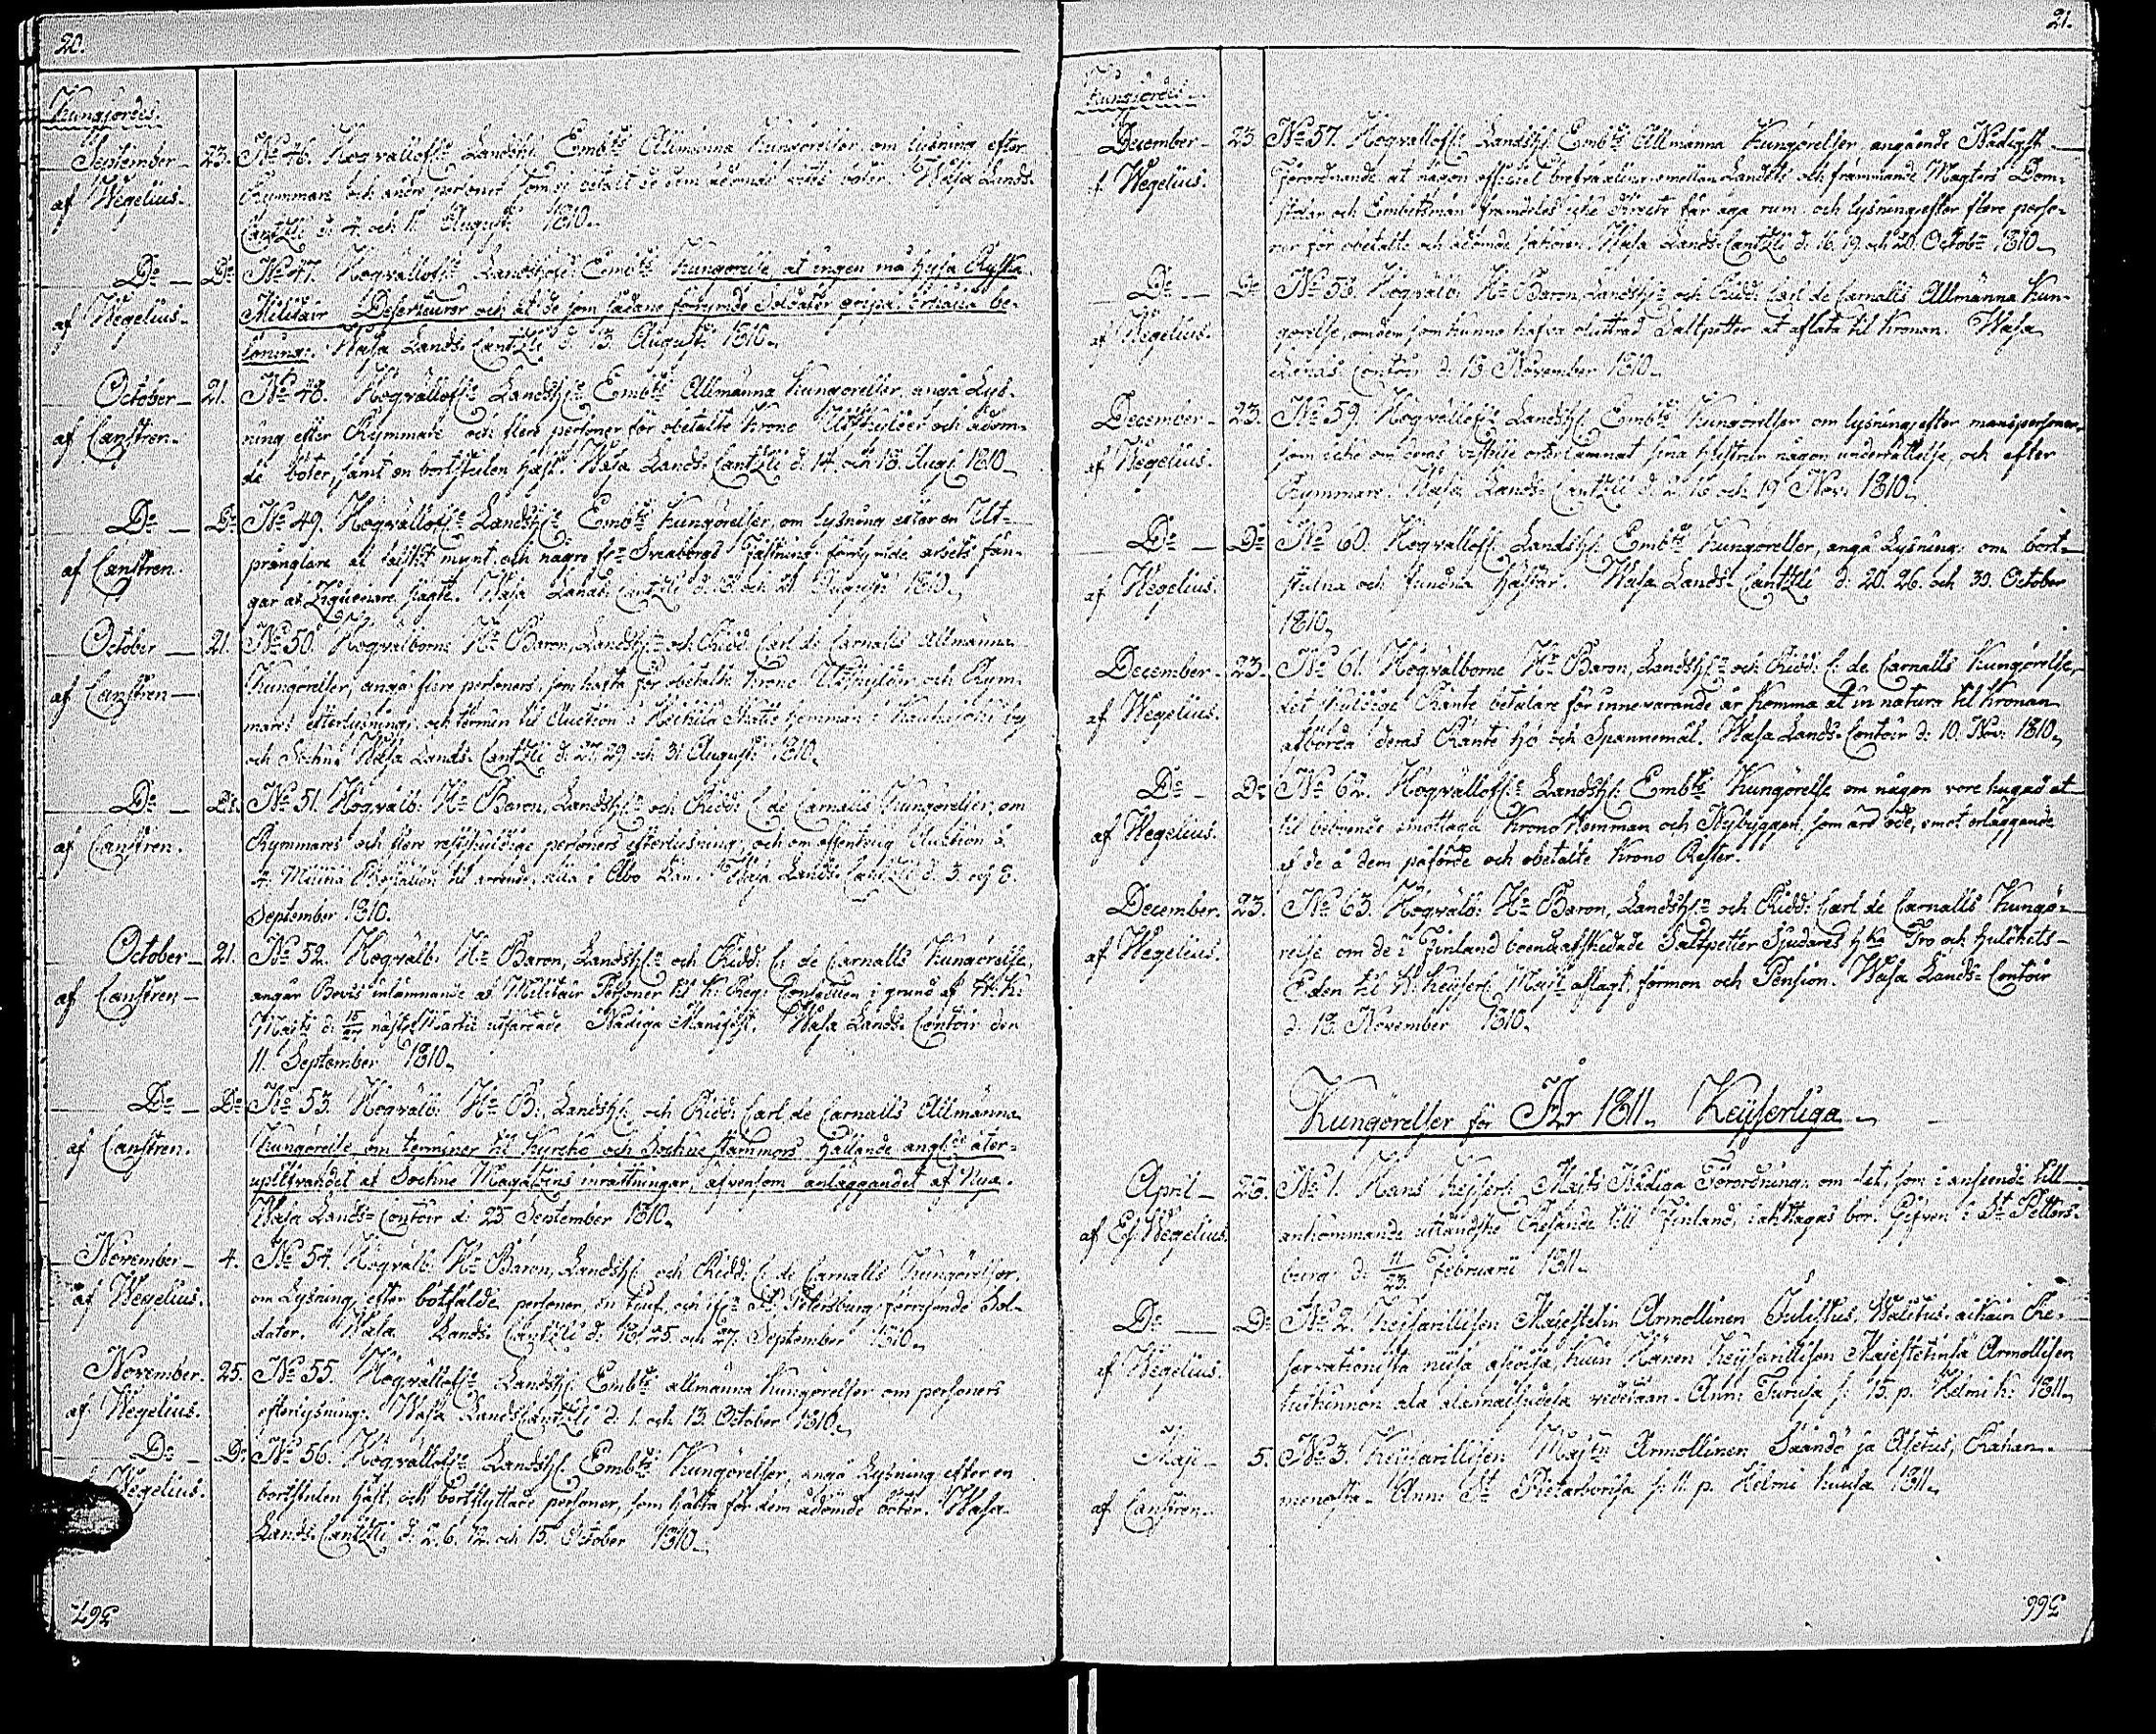 20.
Kungjordes.
September 23. No 46. Högvällofl. Landshfl. Embts Allmänna Kungörelser om lysning efter
af Wegelius. Rymmare och andre personer som ej betalt de dem ådömde böter. Wasa Lands
Cantzli d. 4. och 11. Augusti 1810.
Do Do No 47. Högvällofl. Landshfl. Embts Kungörelse, at ingen må hysa Ryska
af Wegelius. Militair Deserteurer och at de som sådane förrymde Soldater gripa, erhålla be-
löning. Wasa Lands Cantzli d. 13. Augusti 1810.
October 21. No 48. Högvällofl. Landshfl. Embts Allmänna Kungörelser angå Lys-
af Canstren. ning efter Rymmare och flere personer för obetalte Krono Utskylder och ådöm-
de böter, samt en bortstulen häst. Wasa Lands Cantzli d. 14. och 18. Aug. 1810
Do Do No 49. Högvällofl. Landshfl. Embts Kungörelser, om lysning efter en Ut-
af Canstren. pränglare af falskt mynt, och några fr. Sveaborgs Fästning förrymde arbets fån-
gar af Ziguenare slägte. Wasa Lands Cantzli d. 18 och 21 Augusti 1810.
October 21. No 50. Högvälborne Hr Baron, Landshfl. och Ridd. Carl de Carnalls Allmänna
af Canstren Kungörelser, angå flere personers, som häfta för obetalte Krono Utskylder, och Rym-
mares efterlysning, och termin til Auction å Heikilä Matts hemman i Kauhajoki by
och Sochn. Wasa Lands Cantzli d. 27, 29 och 31 Augusti 1810.
Do Do No 51. Högvälb. Hr Baron, Landshfl. och Ridd. C. de Carnalls Kungörelser, om
af Canstren. Rymmares och flere restskyldige personers efterlysning, och om offentelig Auction å
4. Boställen til arrende, alla i Åbo Län. Wasa Lands Cantzli d. 3. och 8.
September 1810.
October 21. No 52. Högvälb. Hr Baron, Landshfl. och Ridd. C. de Carnalls Kungörelse,
af Canstren angår Bevis inlämnande af Militair Personer til K. Reg. Conseillen i grund af H. K.
Majts d. 15/27 nästl. Martii utfärdade Nådiga Manifest. Wasa Lands Contoir den
11. September 1810.
Do Do No 53. Högvälb. Hr B. Landshfl. och Ridd. Carl de Carnalls Allmänna
af Canstren. Kungörelse, om terminer til Kyrcko och Sochne stämmors hållande angl. åter-
uplifvandet af Sochne Magazins inrättningar, äfvensom anläggandet af Nya.
Wasa Lands Contoir d. 25 September 1810.
November 4. No 54. Högvälb. Hr Baron, Landshfl. och Ridd. C. de Carnalls Kungörelser,
af Wegelius. om Lysning efter botfälde personer, en tjuf, och ifr. St Petersburg förrymde Sol-
dater. Wasa Lands Cantzli d. 18. 25 och 27. September 1810.
November. 25. No 55. Högvällofl. Landshfl. Embts allmänna Kungörelser om personers
af Wegelius. efterlysning. Wasa Lands Cantzli d. 1. och 13. October 1810.
Do Do No 56. Högvällofl. Landshfl. Embts Kungörelser, angå Lysning efter en
Wegelius. bortstulen häst, och bortflyttade personer, som häfta för dem ådömde böter. Wasa
Lands Cantzli d. 2. 6. 12. och 15. October 1810.
367.
21.
Kungjordes.
December 23 No 57. Högvällofl. Landshfl. Embts Allmänna Kungörelser, angående Nådigst
af Wegelius. Förordnande, at någon officiel brefväxling emellan Landets och främmande Magters Dom-
stolar och Embetsmän framdeles icke directe får äga rum, och lysning efter flere perso-
ner för obetalte och ådömde sakören. Wasa Lands Cantzli d. 16. 19. och 20. Octobr 1810.
Do Do No 58. Högvälb. Hr Baron, Landshfl. och Ridd. Carl de Carnalls Allmänna Kun-
af Wegelius. görelse, om dem som kunna hafva oluttrad Saltpetter at aflåta til Kronan. Wasa
Lands Contoir d. 18. November 1810.
December 23. No 59. Högvällofl. Landshfl. Embts Kungörelser om lysning efter manspersoner,
af Wegelius. som icke om deras vistelse ort lämnat sina hustrur någon underrättelse, och efter
Rymmare. Wasa Lands Cantzli d. 2. 16 och 19 Nov. 1810.
Do Do No 60. Högvällofl. Landshfl. Embts Kungörelser, angå Lysning om bort-
af Wegelius. stulna och fundna hästar. Wasa Lands Cantzli d. 20. 26. och 30. October
1810.
December 23. No 61. Högvälborne Hr Baron, Landshfl. och Ridd. C. de Carnalls Kungörelse,
af Wegelius. det skuldige Ränte betalare för innevarande år komma at in natura til Kronan
afbörda deras Ränte hö och Spannemål. Wasa Lands Contoir d. 10. Nov. 1810.
Do Do No 62. Högvällofl. Landshfl. Embts Kungörelse om någon vore hugad at
af Wegelius. til beboende emottaga Krono Hemman och Nybyggen, som äro öde, emot erläggande
af de å dem påförde och obetalte Krono Rester.
December. 23. No 63. Högvälb. Hr Baron, Landshfl. och Ridd. Carl de Carnalls Kungö-
af Wegelius. relse om de i Finland boende afskedade Saltpetter Sjudares Tro och huldhets-
Eden til H. Keyserl. Majt aflagt, förmon och Pension. Wasa Lands Contoir
d. 18. November 1810.
Kungörelser för År 1811. Keyserliga
April 28. No 1. Hans Keyserl. Majts Nådiga Förordning om det, som i anseende till
af Ej. Wegelius. ankommande utländske Resande till Finland iakttagas bör. Gifven i St Petters-
burg d. 11/23 Februarii 1811.
Do Do No 2. Keisarillisen Majestetin Armollinen Julistus, Walitus-aikain Re-
af Wegelius. servationista niisä asioisa, kuin Hänen Keisarillisen Majestetinsä Armollisen
tutkinnon ala alamaisudesa vedetään. Ann. Turusa s. 15. p. Helmi k. 1811.
Maji 5. No 3. Keisarillisen Majtn Armollinen Säändö ja Asetus, Rahan
af Canstren. menosta. Ann. St Pietarborisa s. 11. p. Helmi kuusa 1811.
366